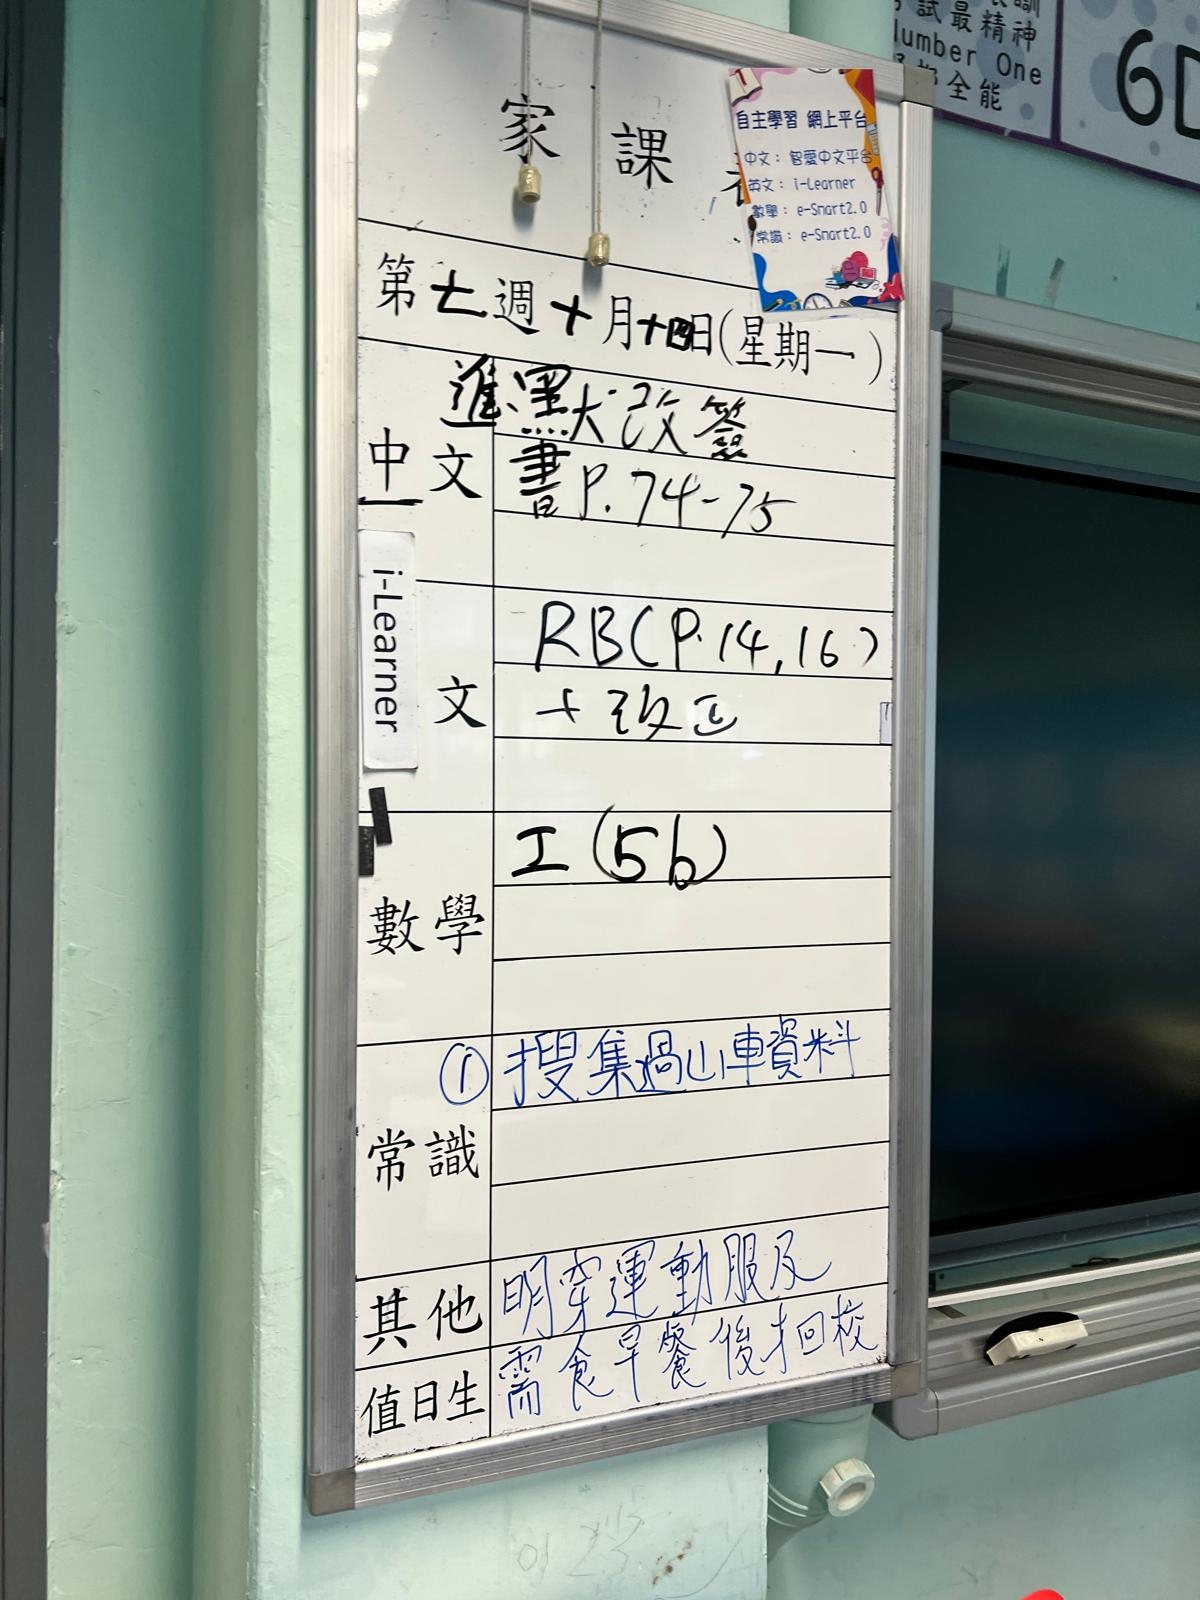 試最精神
Number One
全能
6D
家課
自主學習 網上平台
中文：智愛中文平台
英文：i-Learner
數學：e-Smart2.0
常識：e-Smart2.0
第七週十月十四日(星期一)
中文
進默改簽
書P.74-75
i-Learner
文
RB(P.14,16)
+改正
數學
工(5b)
常識
① 搜集過山車資料
其他
明穿運動服及
值日生
需食早餐後才回校